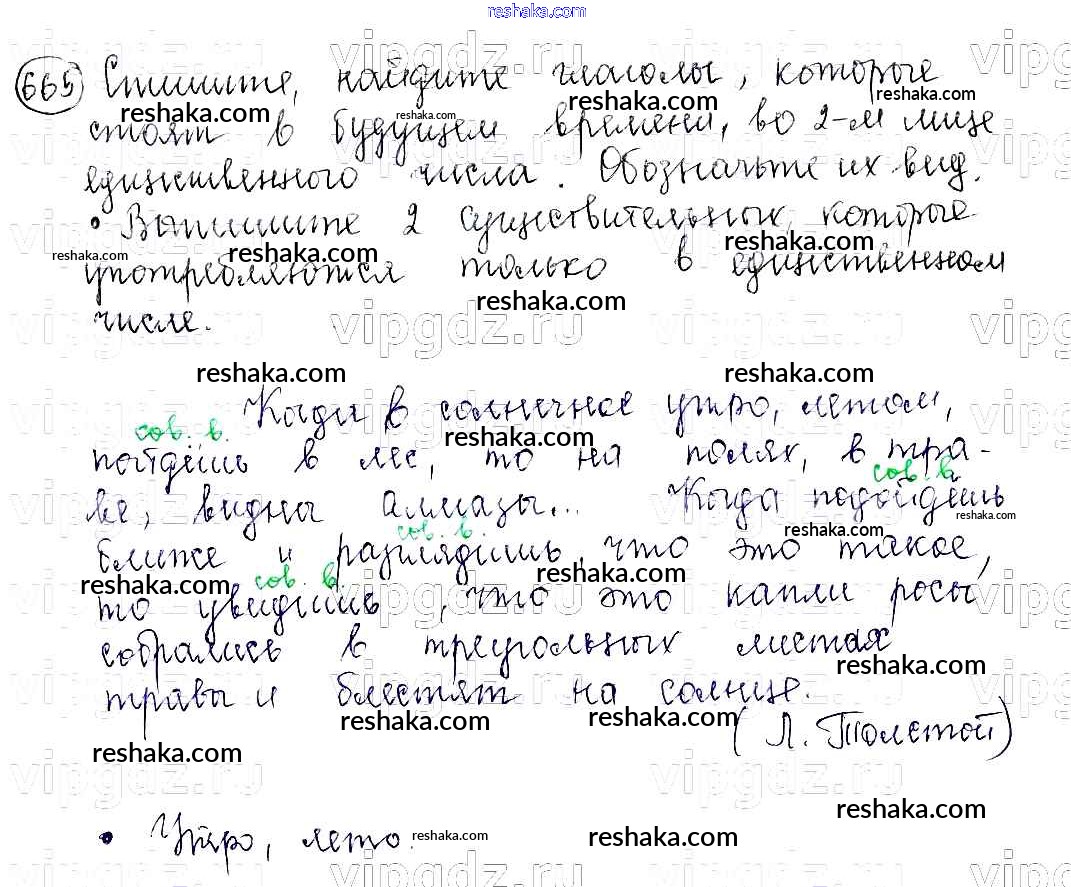 reshaka.com
665 Спишите, найдите глаголы, которые
стоят в будущем времени, во 2-м лице
единственного числа. Обозначьте их вид.
• Выпишите 2 существительных, которые
употребляются только в единственном
числе.
Когда в солнечное утро, летом,
сов. в.
пойдёшь в лес, то на полях, в тра-
сов. в
ве, видны алмазы... Когда подойдёшь
сов. в.
ближе и разглядишь, что это такое,
сов. в.
то увидишь, что это капли росы
собрались в треугольных листах
травы и блестят на солнце.
(Л. Толстой)
• Утро, лето.
vipgdz.ru
reshaka.com